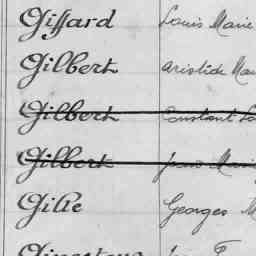 Giffard Louis Marie
Gilbert Aristide
Gilbert Constant
Gilbert Jean
Gille Georges